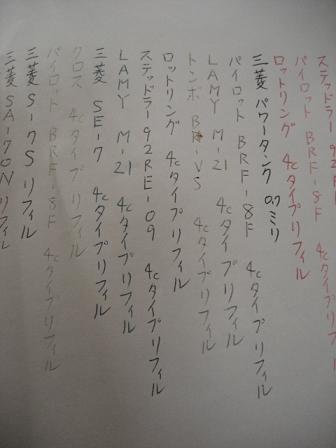 ステッドラー92RE-
パイロット BRF-8F 4cタイプリフィル
ロットリング 4cタイプリフィル
三菱 パワータンク 0.7ミリ
パイロット BRF-8F 4cタイプリフィル
LAMY M-21 4cタイプリフィル
トンボ BR-VS 4cタイプリフィル
ロットリング 4cタイプリフィル
ステッドラー92RE-09 4cタイプリフィル
LAMY M-21 4cタイプリフィル
三菱 SE-7 4cタイプリフィル
クロス 4cタイプリフィル
パイロット BRF-8F 4cタイプリフィル
三菱 S-7S リフィル
三菱 SA-7CN リフィル